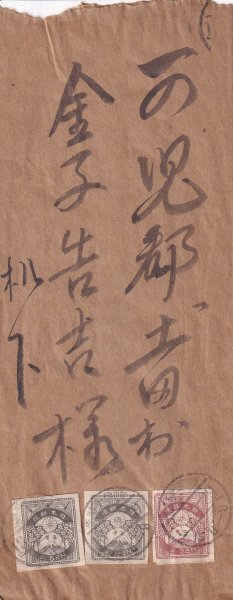 可児郡土田村
金子告吉様
机下